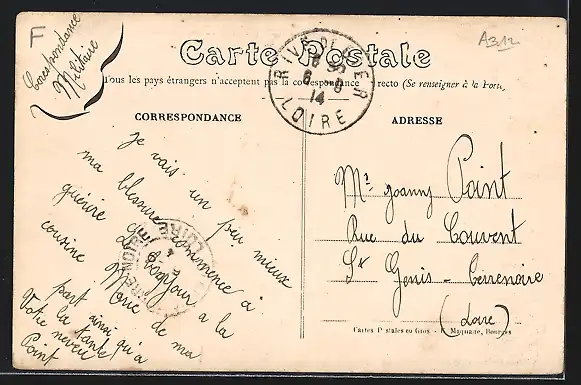 F
Correspondance
Militaire
A312
Carte Postale
Tous les pays étrangers n'acceptent pas la correspondance recto (Se renseigner à la Poste)
RIVE DE GIER
LOIRE
14
CORRESPONDANCE
ADRESSE
Je vais un peu mieux
ma blessure commence à
guérire
Le bonjour a la
cousine Marie de ma
part ainsi qu'a
la tante
Votre neveu
Point
Mr Joanny Point
Rue du Couvent
St Genis - Terrenoire
(Loire)
Cartes Postales en Gros - E. Maquaire, Bourges
LOIRE